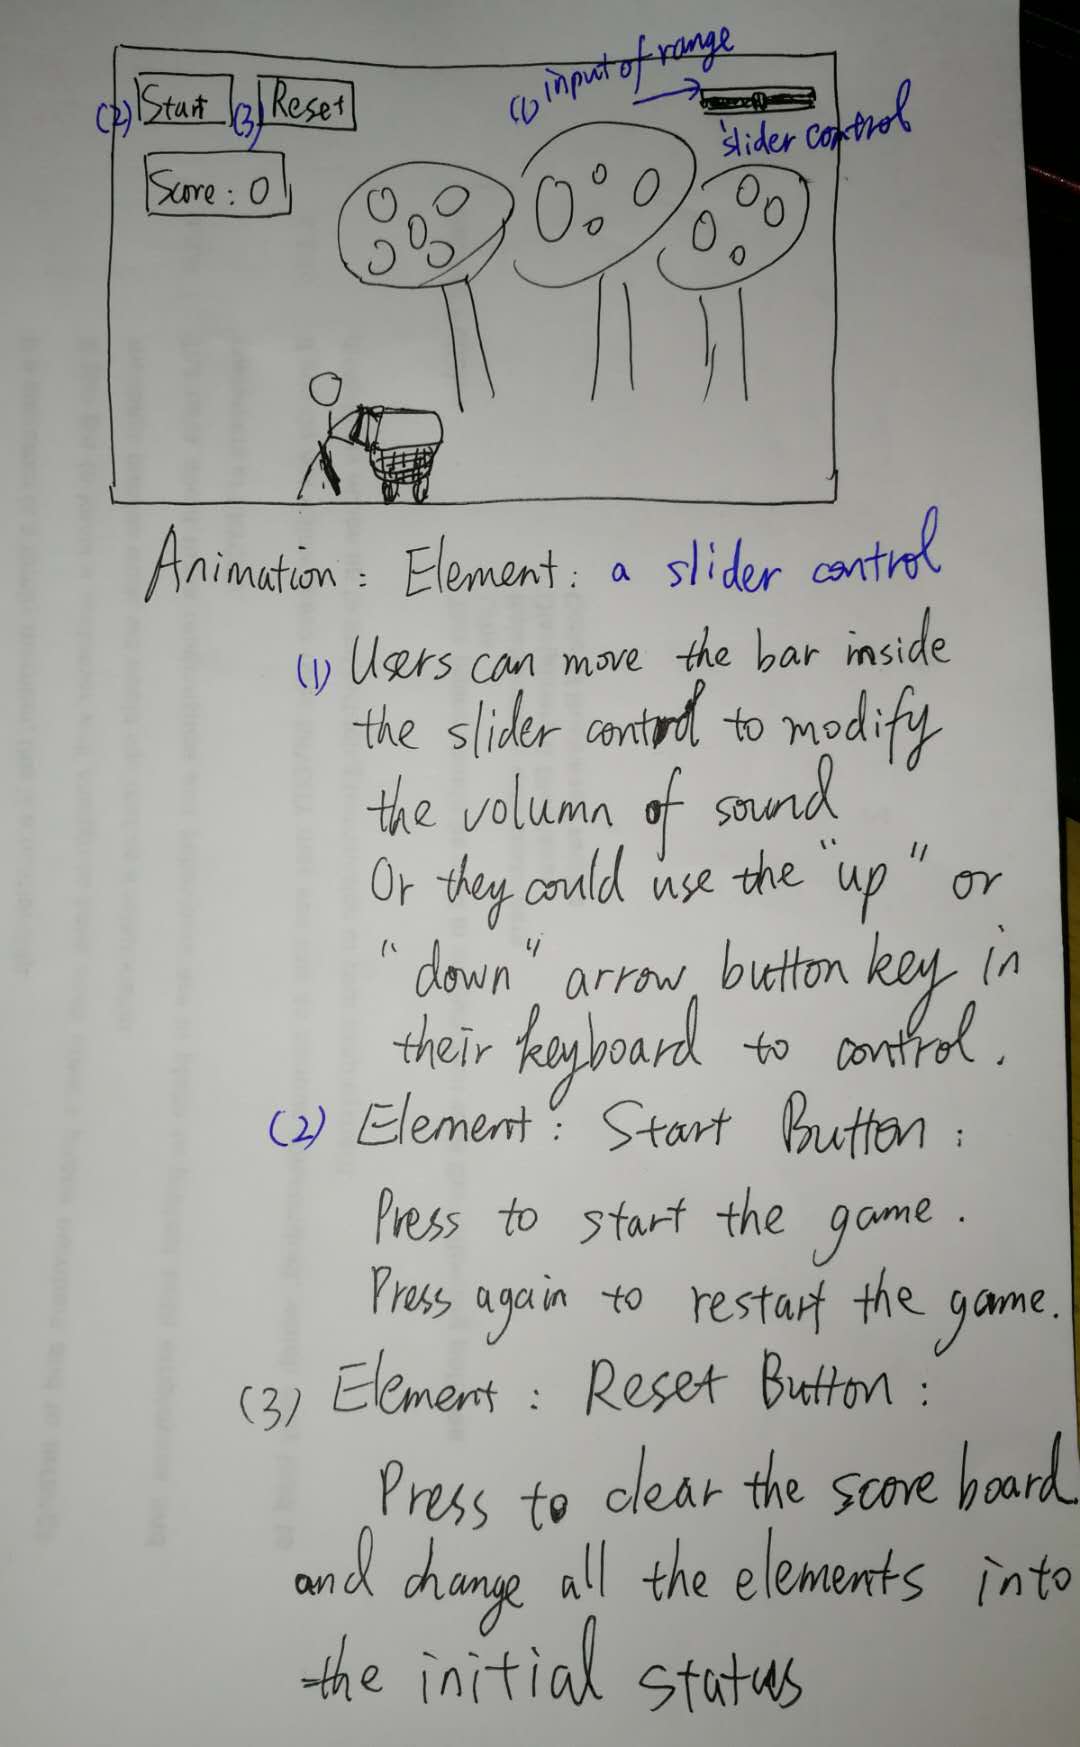 (1) input of range
(2) Start (3) Reset
slider control
Score: 0
Animation: Element: a slider control
(1) Users can move the bar inside
the slider control to modify
the volumn of sound
Or they could use the "up" or
"down" arrow button key in
their keyboard to control.
(2) Element: Start Button:
Press to start the game.
Press again to restart the game.
(3) Element: Reset Button:
Press to clear the score board.
and change all the elements into
the initial status